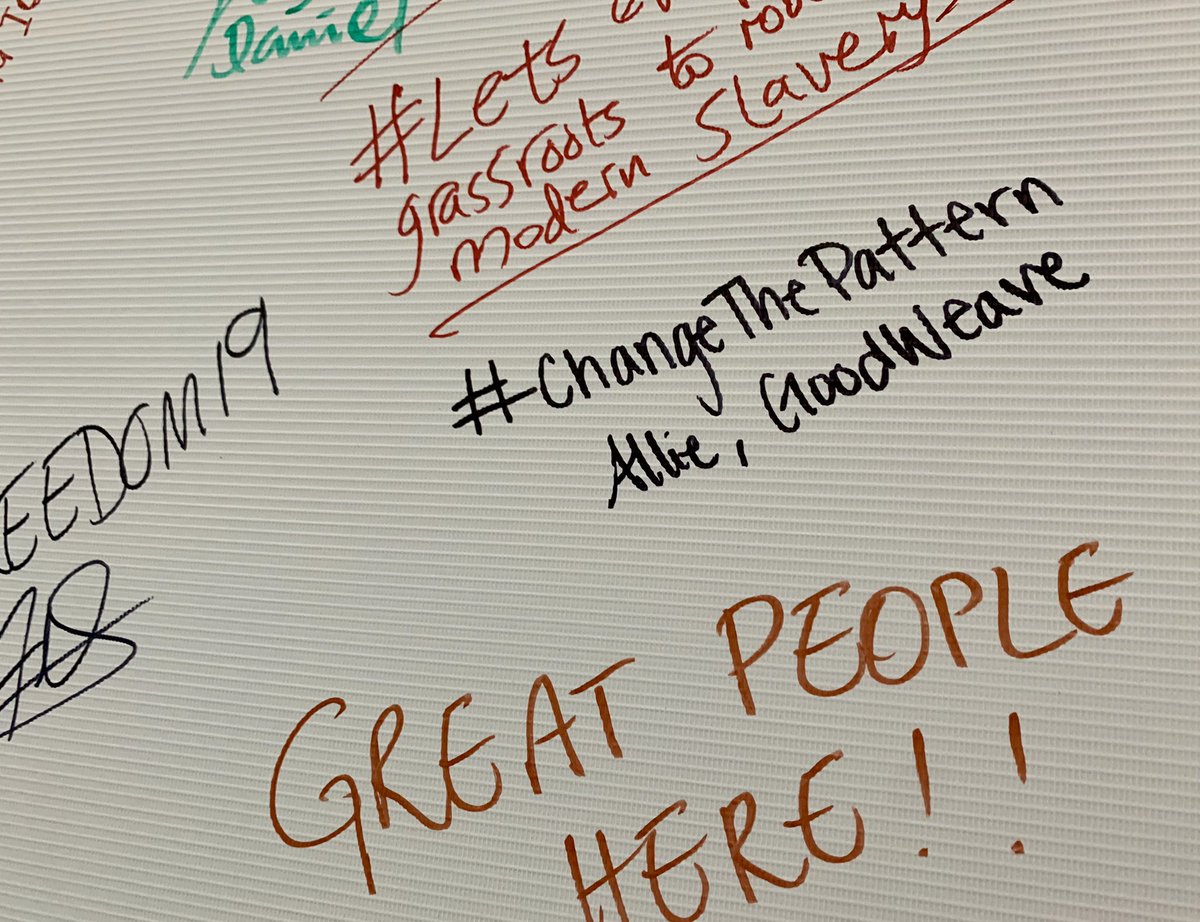 Daniel
#Lets
grassroots to
modern Slavery
#ChangeThePattern
Allie, GoodWeave
EEDOM19
GREAT PEOPLE
HERE!!